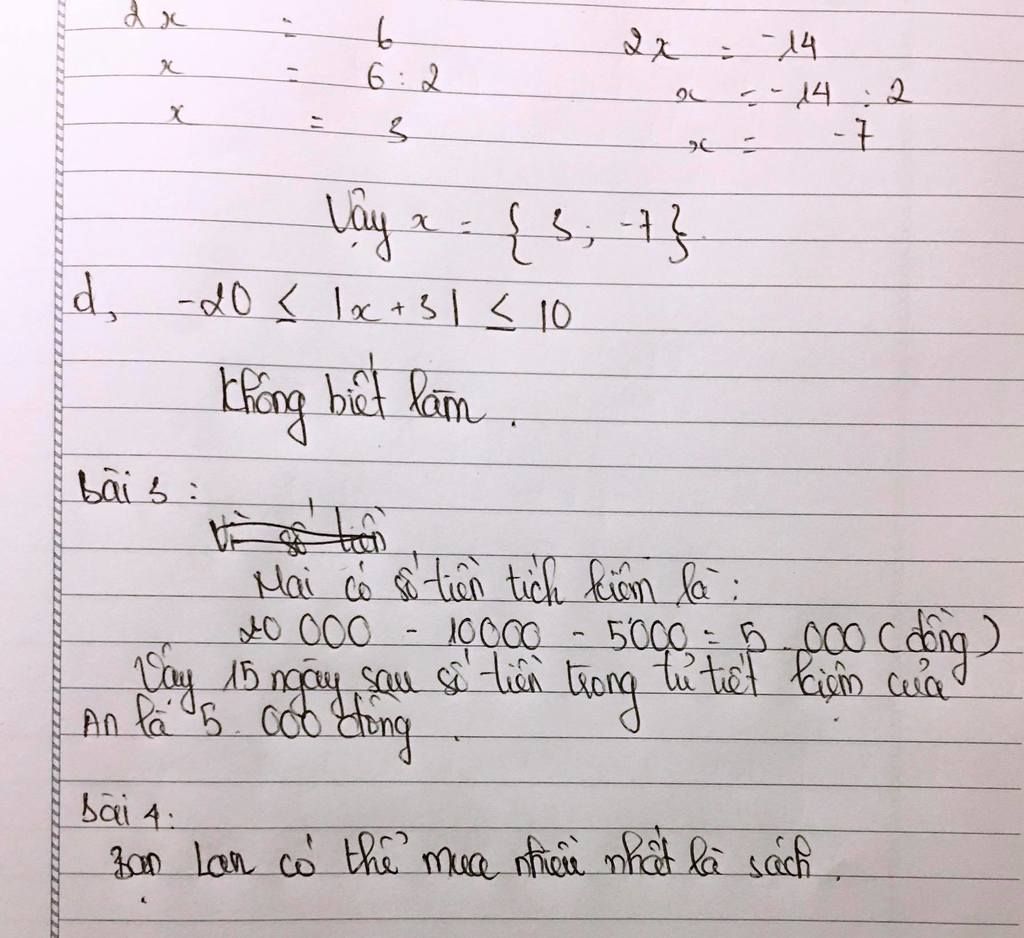 2x = 6 2x = -14
x = 6 : 2 x = -14 : 2
x = 3 x = -7
Vậy x = { 3; -7 }.
d, -20 ≤ |x + 3| ≤ 10
Không biết làm.
Bài 3 :
Vì số tiền
Mai có số tiền tích kiệm là :
20 000 - 10000 - 5000 = 5.000 (đồng)
Vậy 15 ngày sau số tiền trong tủ tiết kiệm của
An là 5.000 đồng.
Bài 4:
Bạn Lan có thể mua nhiều nhất là sách.